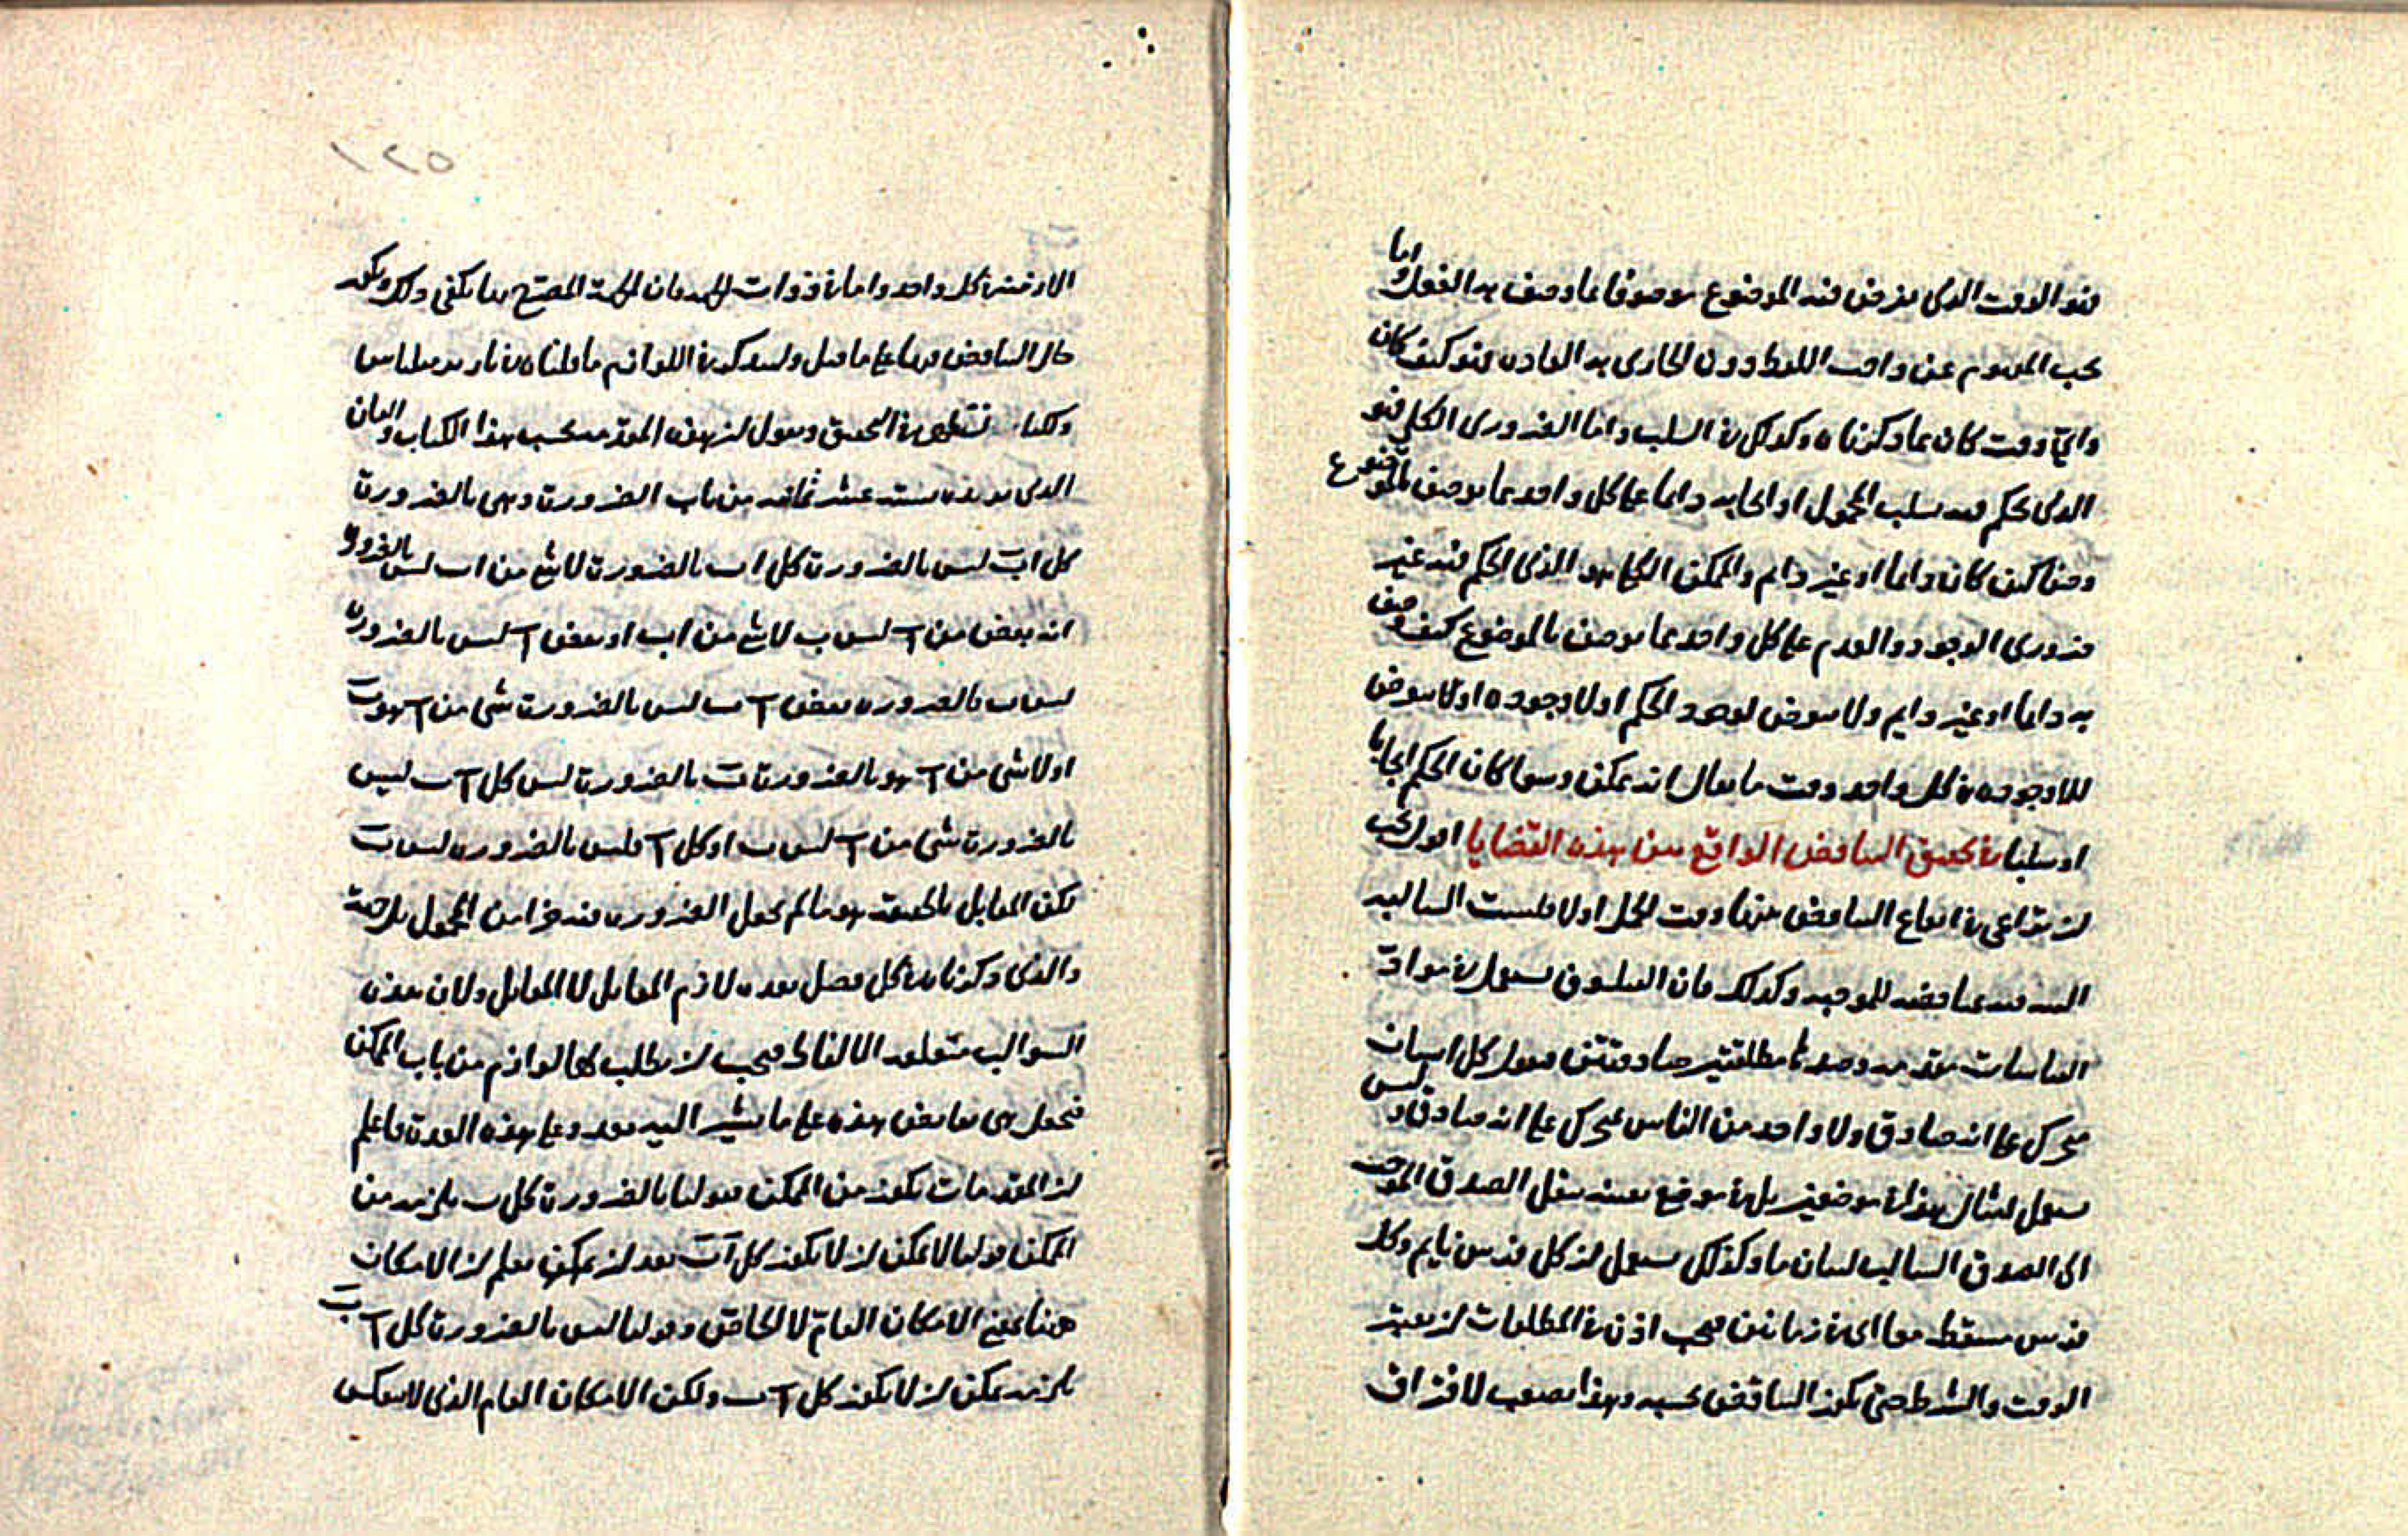 فهو الوقت الذى يفرض فيه الموضوع موصوفا بما وصف به بالفعل واما
بحب المفهوم عن واحب اللفظ دون الجارى به العادة فهو كيف كان
واي وقت كان بما ذكرناه وكذلك في السلب واما الضرورى الكلى فهو
الذى يحكم فيه سلب المحمول او ايجابه دائما على كل واحد مما يوصف بالموضوع
وصفا كيف كان دائما او غير دايم والممكن الكلى هو الذى الحكم فيه غير
ضرورى الوجود والعدم على كل واحد مما يوصف بالموضوع كيف وصف
به دائما او غير دايم ولا يعرض لوجود الحكم اولا وجوده او لا يعرض
للاوجوده في كل واحد وقت ما يقال انه ممكن وسوا كان الحكم ايجابا
او سلبا في تحقيق التناقض الواقع بين هذه القضايا اقول يجب
ان يراعى في ايقاع التناقض منها وقت الحمل اولا فليست السالبة
مناقضه للموجبه وكذلك فان الفيلسوف يستعمل في مواد
القياسات مقدمه وضدها مطلقتين صادقتين فيقول كل انسان
متحرك على انه صادق ولا واحد من الناس متحرك على انه صادق وليس
يستعمل امثال هذا في موضعين بل في موضع بعينه ينقل الصدق الموجب
الى الصدق السالب لبيان ما وكذلك يستعمل ان كل فرس نايم وكل
فرس مستيقظ معا اى في زمانين فيجب اذن في المطلقات ان يعتبر
الوقت والشرط حتى يكون التناقض بحسبه وهذا يصعب لافتراق
١٢٥
الازمنة في كل واحد واما في ذوات الجهه فان الجهة المصرح بها يكفى ذلك ويكون
حال التناقض فيها على ما قيل وليذكر في اللوازم ما قلناه في
ولكنا ننظر في التحقيق ونقول ان هذه المقدمه بحسب هذا الكتاب والبيان
الذى نورده ستة عشر ثمانيه من باب الضرورة وهى بالضرورة
كل اب ليس بالضرورة كل اب بالضرورة لا شئ من اب ليس بالضرورة
انه بعض من آ ليس ب لا شئ من اب او بعض آ ليس بالضرورة
ليس ب بالضروره بعض آ ب ليس بالضرورة شى من آ هو ب
او لا شى من آ هو بالضرورة ب بالضرورة ليس كل آ ب ليس
بالضرورة شى من آ ليس ب او كل آ فليس بالضروره ليس ب
لكن المقابل بالحقيقه هو ما لم يجعل الضروره فيه جزا من المحمول بل جهة
والذى ذكرناه في كل فصل بعده لازم المقابل لا المقابل ولان هذه
السوالب متعلقه الالفاظ فيجب ان يطلب لها لوازم من باب الممكن
فيجعل هى نقايض هذه على ما يشير اليه بعد وعلى هذه العدة فاعلم
ان المقدمات يكون من الممكن فقولنا بالضرورة كل ب يلزمه من
الممكن قولنا لا يمكن ان لا يكون كل آ ب بعد ان يعلم ان الامكان
هنا بمعنى الامكان العام لا الخاص وقولنا ليس بالضرورة كل آ ب
يلزمه يمكن ان لا يكون كل آ ب ولكن الامكان العام الذى لا ينعكس